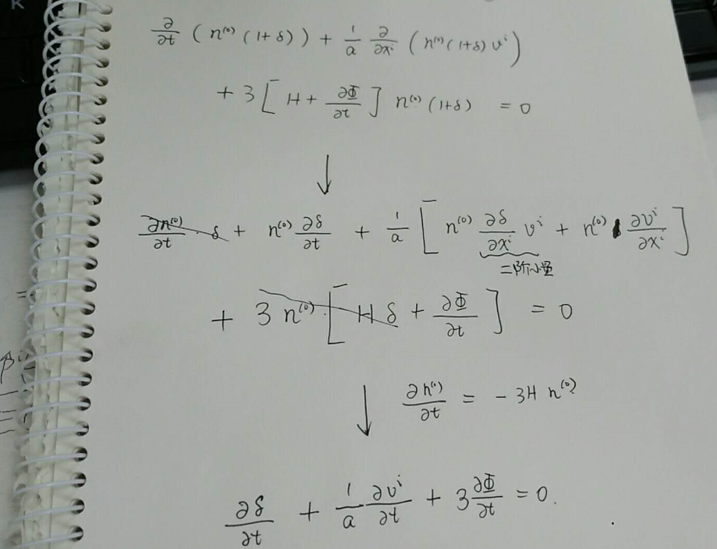 ∂/∂t (n⁽⁰⁾(1+δ)) + 1/a ∂/∂xⁱ (n⁽⁰⁾(1+δ)vⁱ)
+ 3[H + ∂Φ/∂t] n⁽⁰⁾(1+δ) = 0
↓
∂n⁽⁰⁾/∂t · δ + n⁽⁰⁾ ∂δ/∂t + 1/a [n⁽⁰⁾ ∂δ/∂xⁱ vⁱ + n⁽⁰⁾ ∂vⁱ/∂xⁱ]
二阶小量
+ 3n⁽⁰⁾ [Hδ + ∂Φ/∂t] = 0
↓ ∂n⁽⁰⁾/∂t = -3H n⁽⁰⁾
∂δ/∂t + 1/a ∂vⁱ/∂t + 3 ∂Φ/∂t = 0.